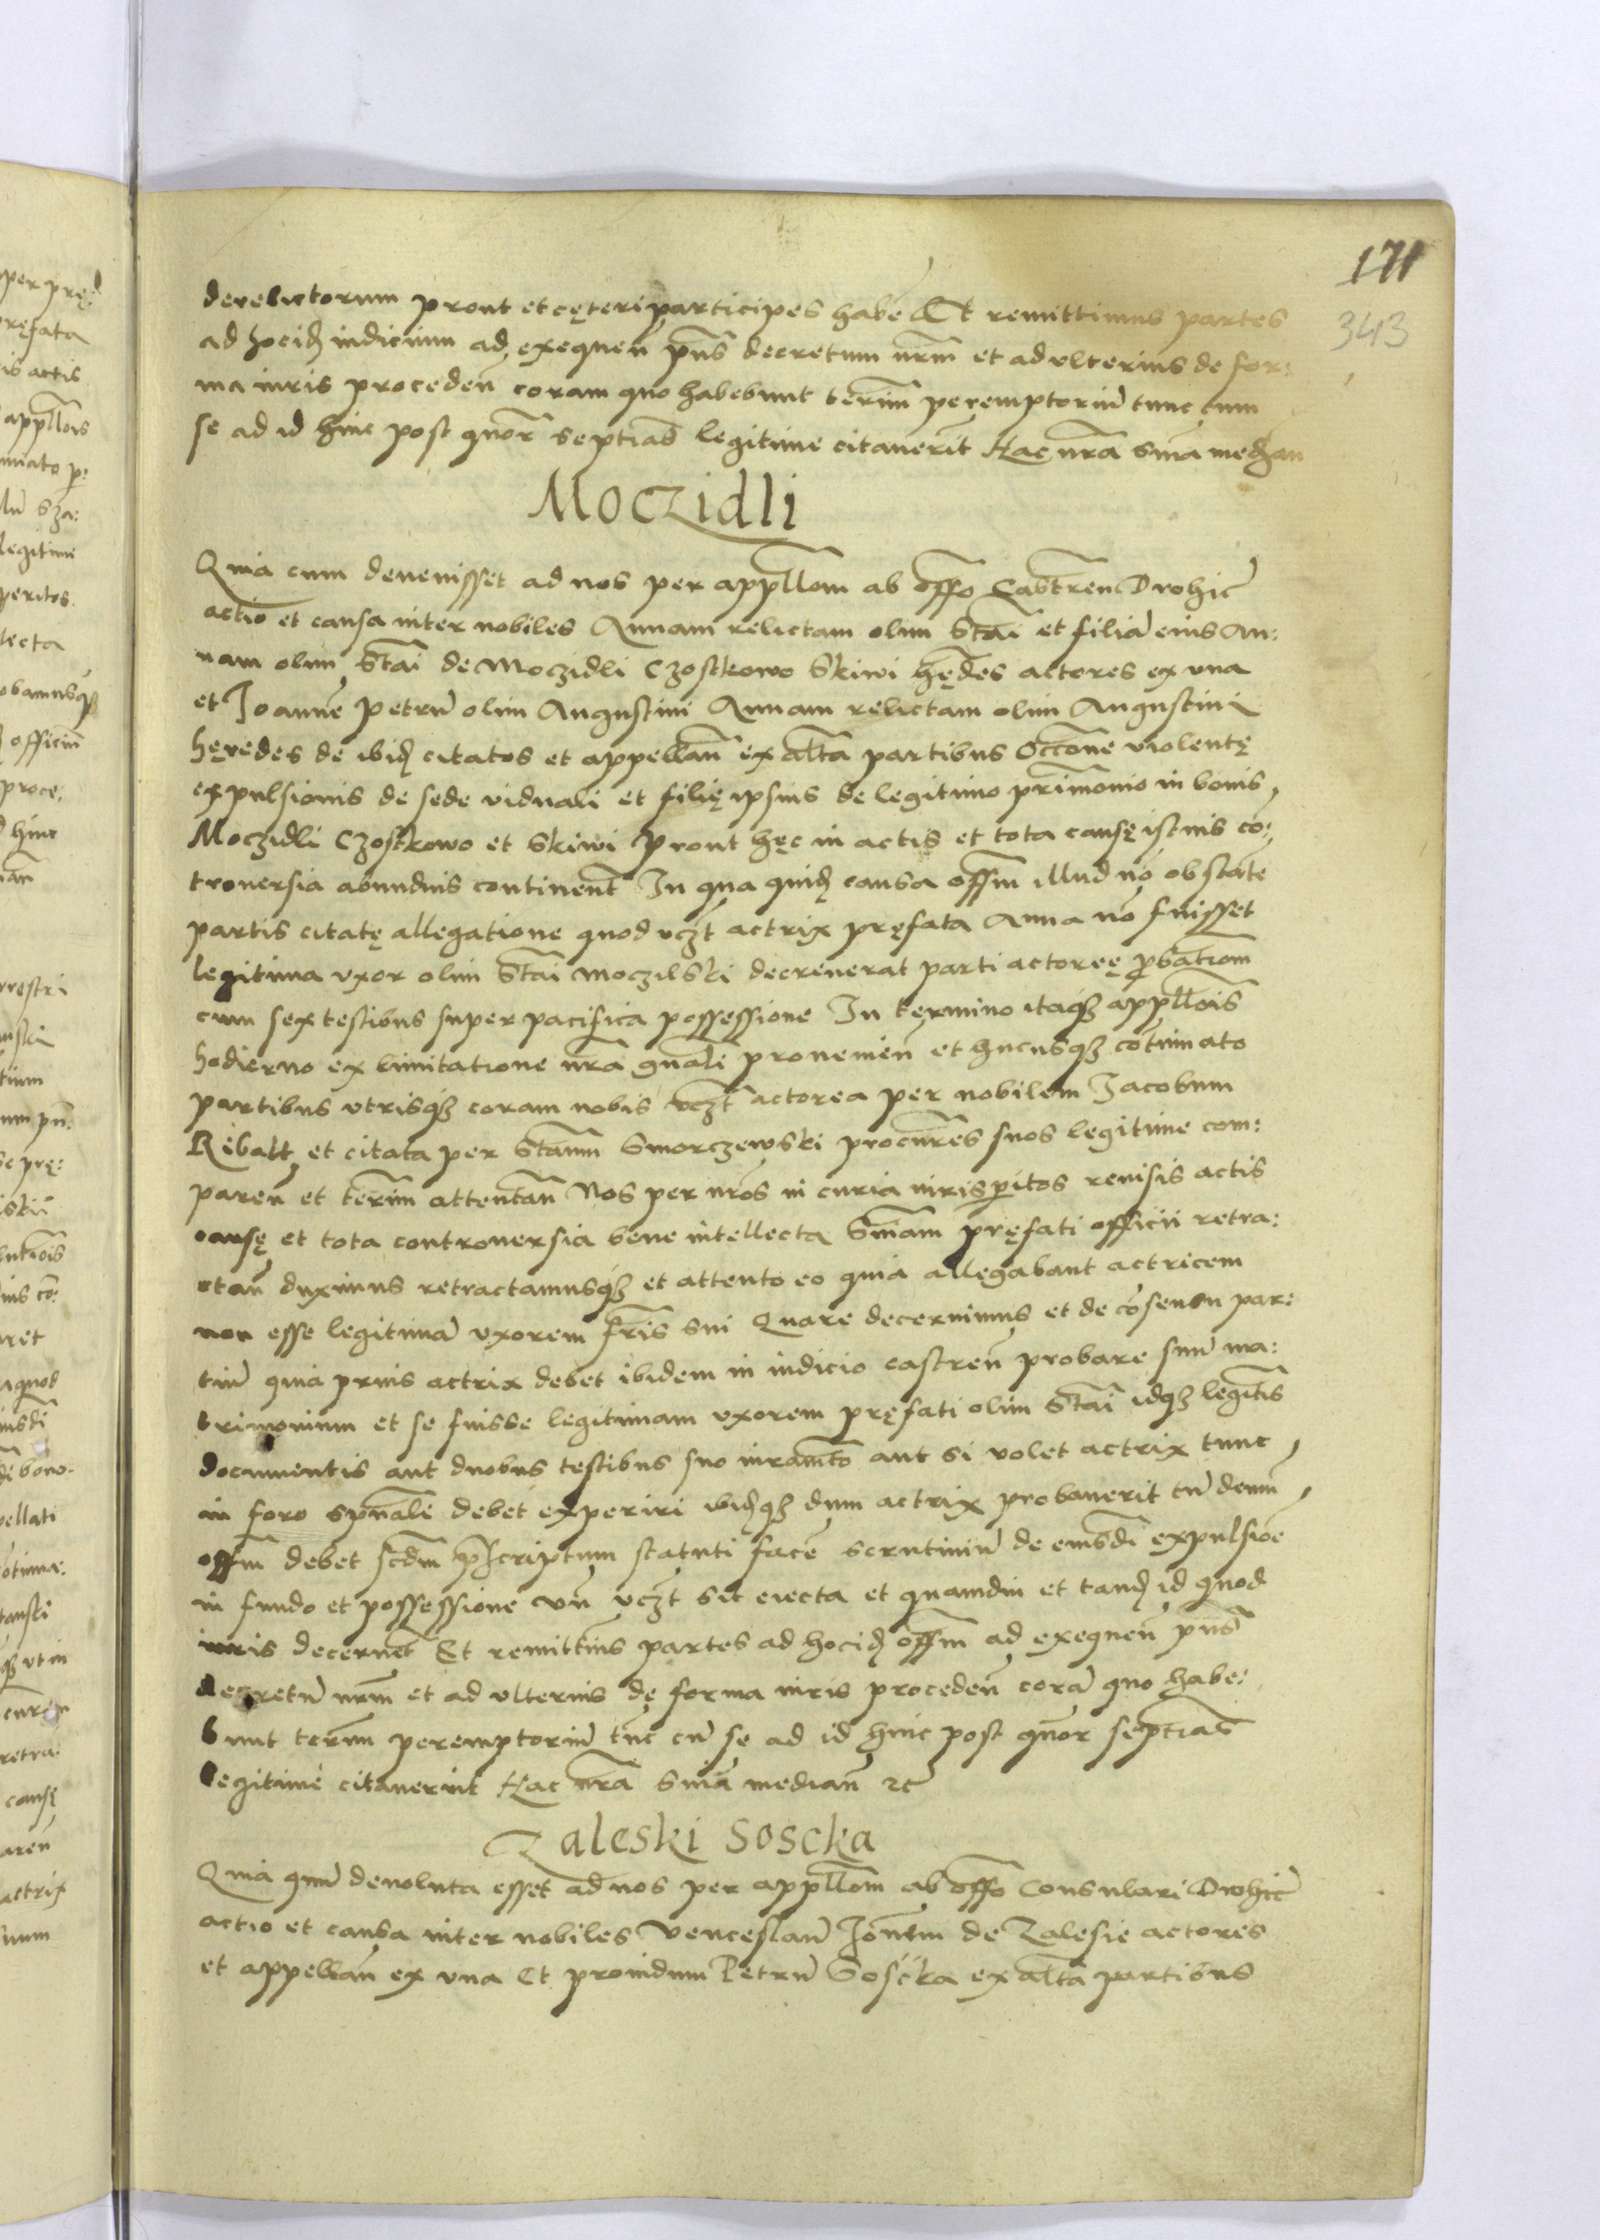 171
343
derelictorum prout et cęteri participes habē Et remittimus partes
ad hocidꝫ iudicium ad exequeñ p̃ns decretum nr̃m et ad ulterius de for:
ma iuris procedeñ coram quo habebunt term̃ peremptoriũ tunc cum
se ad id hinc post quor̃ septias̃ legitime citauerit Hac nr̃a s̃nia median
Moczidli
Quia cum deuenisset ad nos per app̃llom ab offo Castreñ Drohic̃
actio et causa inter nobiles Annam relictam olim Stãi et filiã eius An:
nam olim Stãi de Moczidli Czostkowo Skiwi hędes actores ex vna
et Joannẽ Petrũ olim Augustini Annam relictam olim Augustini
hęredes de ibidꝫ citatos et appellañ ex altã partibus Occ̃one violentę
expulsionis de sede viduali et filię ipsius de legitimo prĩmonio in bonis
Moczidli Czostkowo et Skiwi Prout hęc in actis et tota causę istius cõ:
trouersia abundius continent̃ In qua quidꝫ causa off̃m illud nõ obstãte
partis citatę allegatione quod vczt̃ actrix pręfata Anna nõ fuisset
legitima vxor olim Stãi Moczilski decreuerat parti actoreę ꝓbatiom̃
cum sex testibus super pacifica possessione In termino itaqꝫ app̃llois
hodierno ex limitatione nr̃a gnãli proueñien et hucusqꝫ cõtinuato
partibus vtrisqꝫ coram nobis vczt̃ actorea per nobilem Jacobum
Ribalt et citata per Stãum Smorczewski procur̃es suos legitime com:
pareñ et term̃ attentañ Nos per nr̃os in curia iurisperitos reuisis actis
causę et tota controuersia bene intellecta S̃niam pręfati officii retra:
ctañ duximus retractamusqꝫ et attento eo quia allegabant actricem
non esse legitimã vxorem fr̃is sui Quare decernimus et de cõsensu par:
tiũ quia prius actrix debet ibidem in iudicio castreñ probare suũ ma:
trimonium et se fuisse legitimam vxorem pręfati olim Stãi idqꝫ legitĩs
documentis aut duobus testibus suo iuramt̃o aut si volet actrix tunc
in foro sp̃uali debet experiri ibidꝫqꝫ dum actrix probauerit tũ demũ
off̃m debet scdm̃ p̃scriptum statuti facẽ scrutiniũ de eiusdĩ expulsiõe
in fundo et possessione vñ vczt̃ sit eiecta et quamdiu et tandꝫ id quod
iuris decernet̃ Et remittim̃s partes ad hocidꝫ off̃m ad exequeñ p̃ns
decretũ nr̃m et ad ulterius de forma iuris procedeñ corã quo habe:
bunt term̃ peremptoriũ tũc cũ se ad id hinc post quor̃ septias̃
legitime citauerint Hac nr̃a s̃nia mediañ ꝛc̃
Zaleski Soscka
Quia quũ deuoluta esset ad nos per app̃llom ab offo Consulari Drohic̃
actio et causa inter nobiles Venceslaũ Joñem de Zalesie actores
et appellañ ex vna Et prouidum Petrũ Soscka ex altã partibus